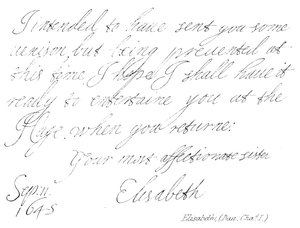 I intended to have sent you some
venison, but being prevented at
this time I hope I shall have it
ready to entertaine you at the
Haye when you returne:
Your most affectionate sister
Elisabeth
Sep: 11
1645
Elisabeth, (Dau. Cha: I.)